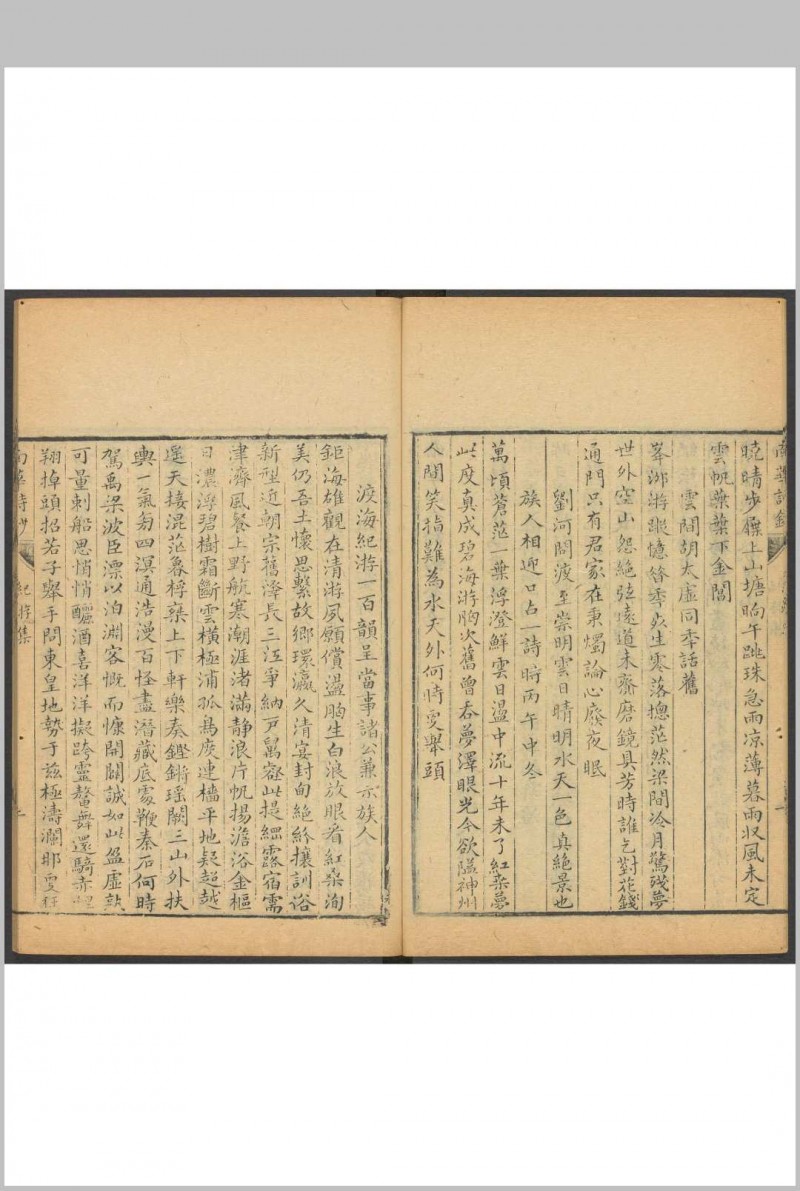 曉晴步屧上山塘晌午跳珠急雨凉薄暮雨収風未定
雲帆葉葉下金閶
雲間胡太虛同年話舊
峯泖游蹤憶昝季炎生零落揔茫然梁間冷月驚殘夢
世外空山怨絶弦遠道未齎磨鏡具芳時誰乞對花錢
通門只有君家在秉燭論心廢夜眠
劉河開渡至崇明雲日晴明水天一色真絶景也
族人相迎口占一詩時丙午申冬
萬頃蒼茫一葉浮澄鮮雲日盪中流十年未了紅桑夢
此度真成碧海游胸次舊曾吞夢澤眼光今欲隘神州
人間笑指難為水天外何時更舉頭
渡海紀游一百韻呈當事諸公兼示族人
鉅海雄觀在清游夙願償盪胸生白浪放眼看紅桑洵
美仍吾土懷思繫故鄉環瀛久清宴封甸絶紛攘訓俗
新型近朝宗舊澤長三江爭納戶萬壑此提綑露宿需
津濟風餐上野航寒潮涯渚滿静浪片帆揚澹浴金樞
日濃浮碧樹霜斷雲橫極浦孤鳥度連檣平地疑超越
遥天接混茫象桴乗上下軒樂奏鏗鏘瑶闕三山外扶
輿一氣匔四溟通浩漫百怪盡潛藏底處鞭秦石何時
駕禹梁波臣漂以泊淵客慨而慷開關誠如此盈虛孰
可量刺船思悄悄釃酒喜洋洋擬跨靈鼇舞還騎赤鯉
翔掉頭招若子舉手問東皇地勢于兹極濤瀾耶更狂
南華詩鈔
紀游集